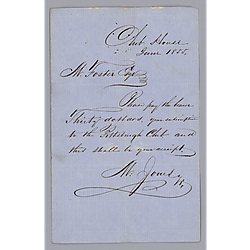 Club House
June 1855
M. Foster Esq
Please pay the
Thirty dollars, your
to the Pittsburgh Club and
this shall be your receipt
M. Jones